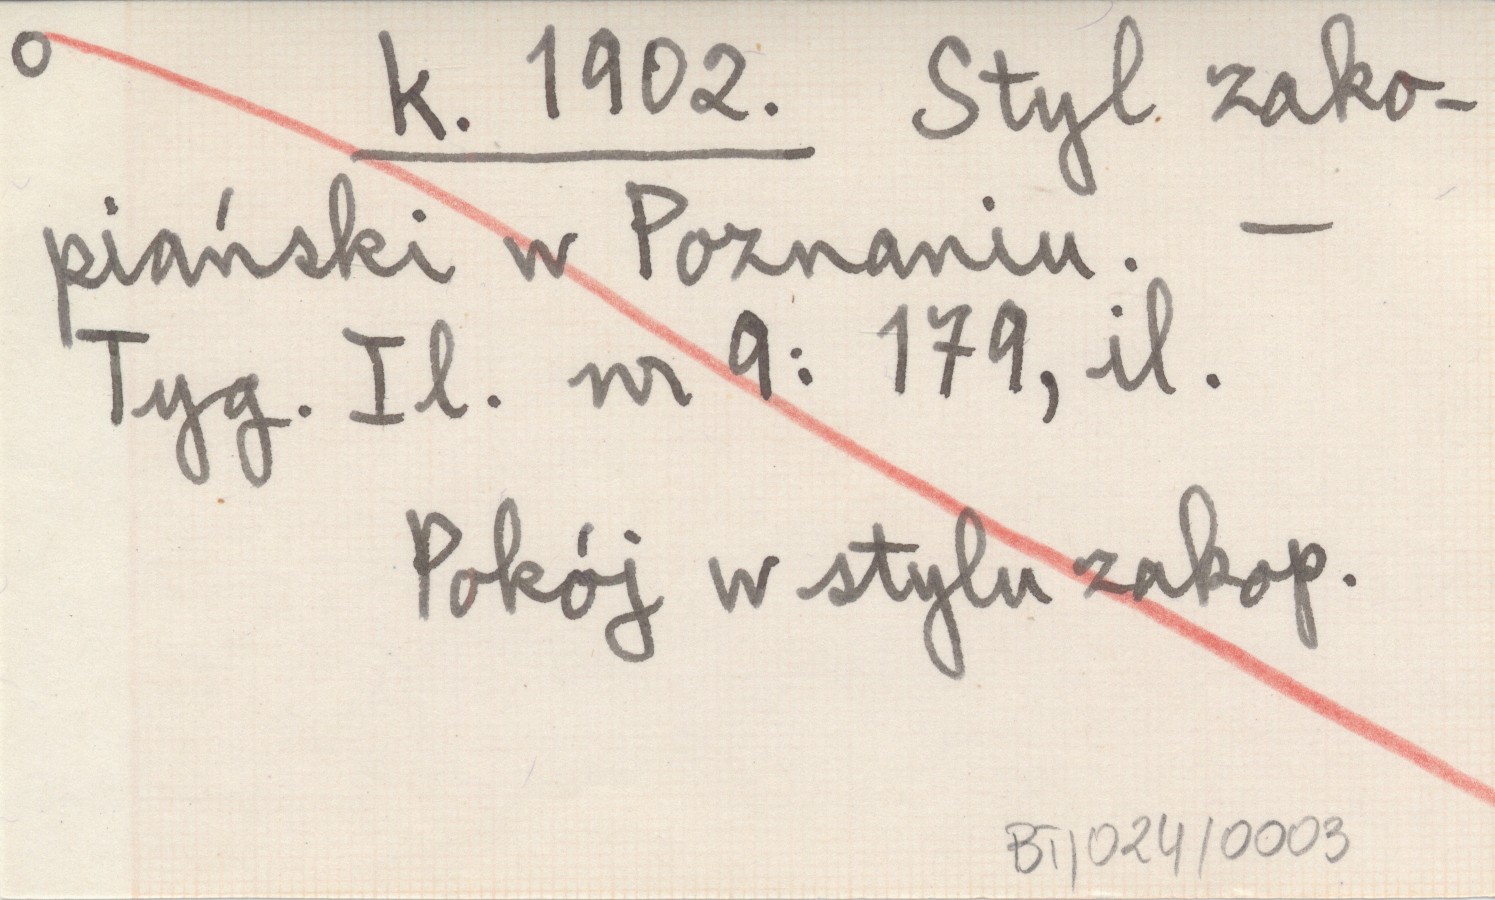 o k. 1902. Styl zako-
piański w Poznaniu. —
Tyg. Il. nr 9: 179, il.
Pokój w stylu zakop.
BT/024/0003